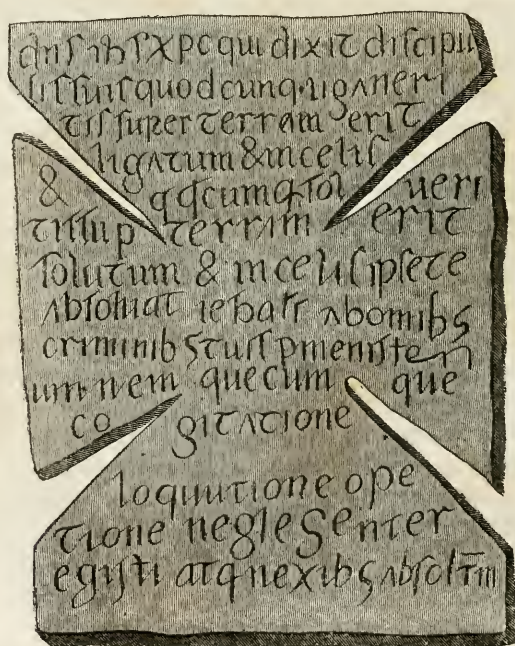 dns ihs xpc qui dixit discipu
lis suis quodcunq. ligaveri
tis super terram erit
ligatum & in celis
& qdcumq sol ueri
tis sup terram erit
solutum & in celis ipse te
absoluat iebatt abomibs
criminibs tuis p menisteri
um nem que cum que
co gitatione
loquutione ope
tione neglegenter
egisti atq nexibs absoltm